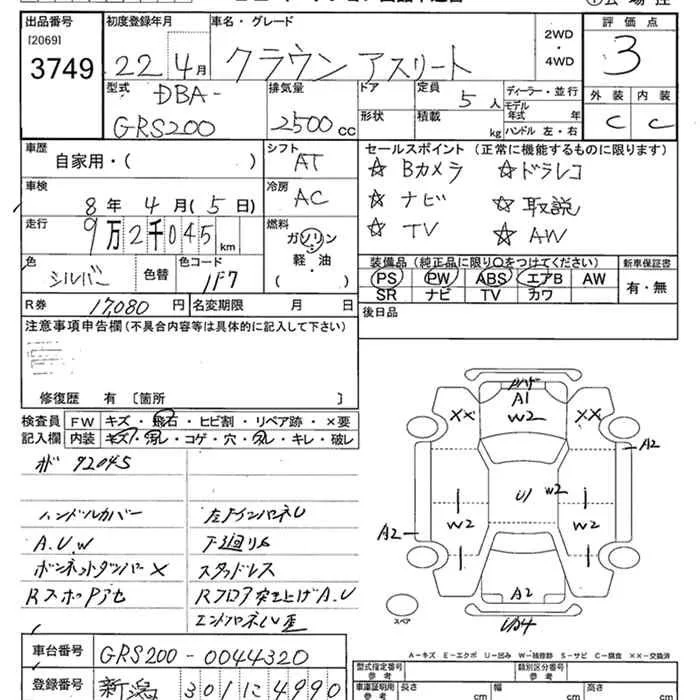 出品番号
[2069]
3749
初度登録年月
22年 4月
車名・グレード
クラウン アスリート
2WD
・
4WD
評価点
3
外装 内装
C C
型式
DBA-
GRS200
排気量
2500 cc
ドア
形状
定員
5 人
積載
kg
ディーラー・並行
モデル年式 年
ハンドル 左・右
車歴
自家用・( )
シフト
AT
車検
8年 4月(5日)
冷房
AC
走行
9万2千045 km
燃料
ガソリン
軽・油
( )
色
シルバー
色替
色コード
1F7
R券 17,080 円
名変期限 月 日
セールスポイント (正常に機能するものに限ります)
☆ Bカメラ ☆ ドラレコ
☆ ナビ ☆ 取説
☆ TV ☆ AW
装備品 (純正品に限り○をつけてください)
PS PW ABS エアB AW
SR ナビ TV カワ
新車保証書
有・無
後日品
注意事項申告欄 (不具合内容等は具体的に記入して下さい)
修復歴 有 〔箇所 〕
検査員
記入欄
FW キズ・飛石・ヒビ割・リペア跡・×要
内装 キズ・汚レ・コゲ・穴・スレ・キレ・破レ
メーター 92045
ハンドルカバー
A.U.W
ボンネットダンパー×
左Fインパネ U
下廻り
スタッドレス
Rフロア突き上げ A.U
エンドパネル 歪
A1
W2
XX
XX
A2
W2
U1
W2
W2
A2
A2
スペア
A-キズ E-エクボ U-凹み W-補修跡 S-サビ C-腐食 XX-交換済
車台番号 GRS200-0044320
登録番号 新潟 301 に 4990
型式指定番号
参考
類別区分番号
参考
車庫証明用
参考
長さ cm
幅 cm
高さ cm